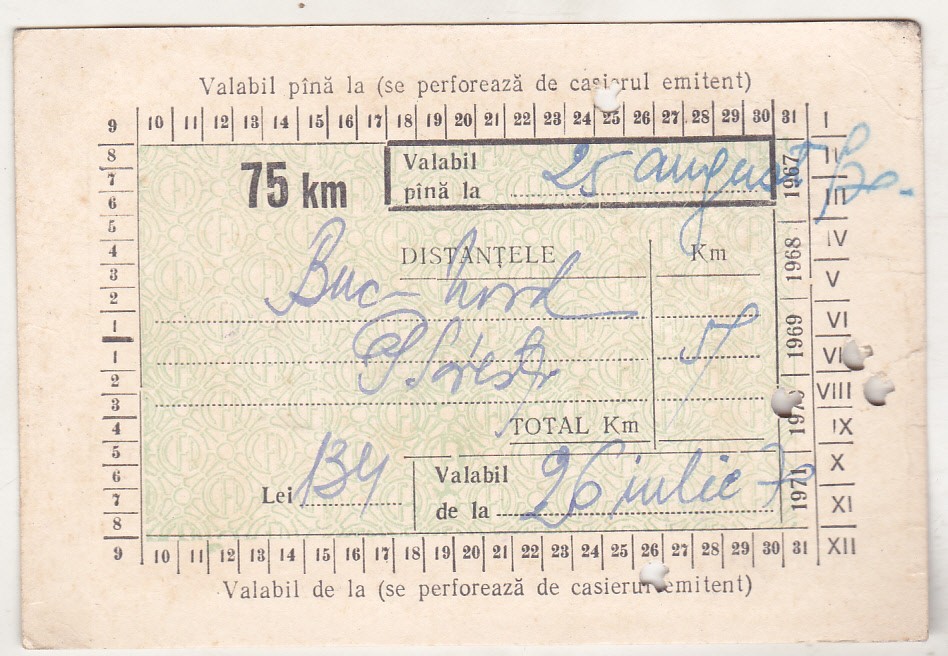 Valabil pînă la (se perforează de casierul emitent)
9 10 11 12 13 14 15 16 17 18 19 20 21 22 23 24 25 26 27 28 29 30 31 I
8 7 6 5 4 3 2 1 1 2 3 4 5 6 7 8
75 km
Valabil
pînă la 25 august 70
DISTANȚELE Km
Buc-Nord
57
TOTAL Km
Lei 134
Valabil
de la 26 iulie 70
1967 1968 1969 1970 1971
II III IV V VI VII VIII IX X XI XII
9 10 11 12 13 14 15 16 17 18 19 20 21 22 23 24 25 26 27 28 29 30 31
Valabil de la (se perforează de casierul emitent)